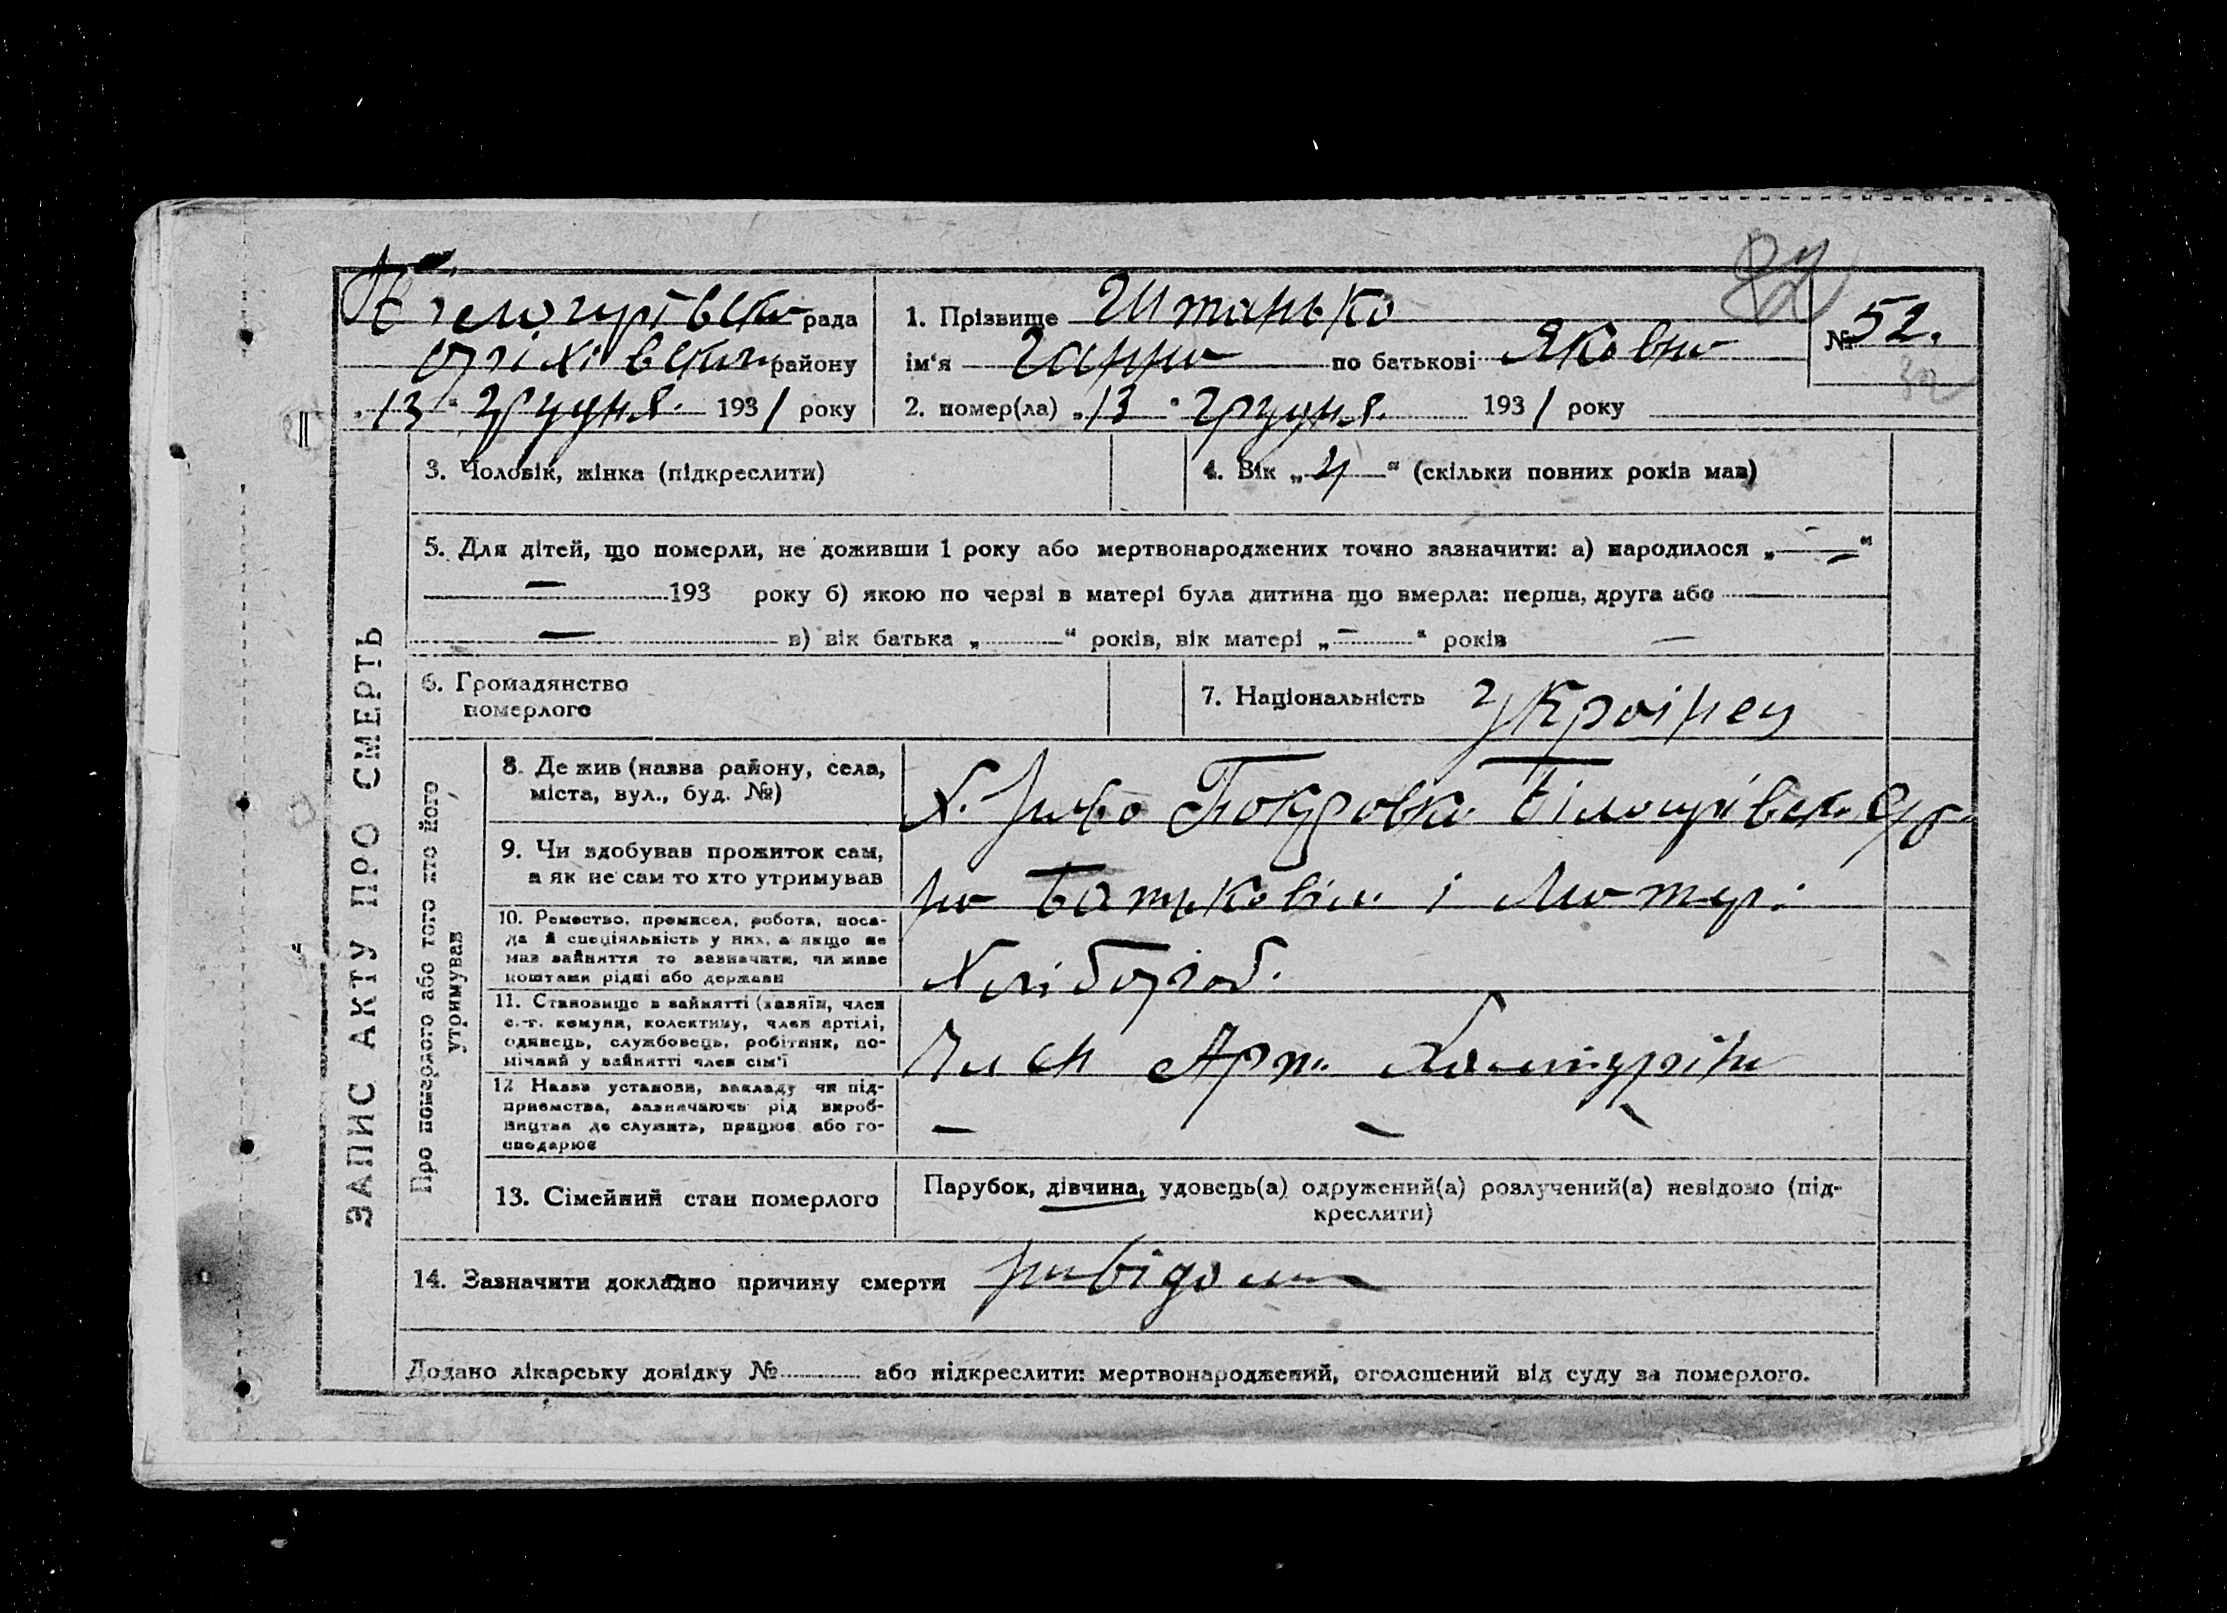 82
Білогирівська рада
Оріхівського району
„13“ грудня. 1931 року
1. Прізвище Штанько
ім‘я Ганна по батькові Яковна
№ 52.
32
2. помер(ла) „13“ грудня. 1931 року
ЗАПИС АКТУ ПРО СМЕРТЬ
3. Чоловік, жінка (підкреслити)
4. Вік „4“ (скільки повних років мав)
5. Для дітей, що померли, не доживши 1 року або мертвонароджених точно зазначити: а) народилося „—“
— 193 року б) якою по черзі в матері була дитина що вмерла: перша, друга або
— в) вік батька „ “ років, вік матері „—“ років —
6. Громадянство
померлого
7. Національність Украінец
Про померлого або того хто його
утримував
8. Де жив (назва району, села,
міста, вул., буд. №)
Х. Ново Покровка Білогирівск.
9. Чи здобував прожиток сам,
а як не сам то хто утримував
на батьковім і Матер.
10. Ремество, промисел, робота, поса-
да й спеціяльність у них, а якщо не
мав зайняття то зазначати, чи живе
коштами рідні або держави
Хлібороб.
11. Становище в зайнятті (хазяїн, член
с.-г. комуни, колективу, член артілі,
одинець, службовець, робітник, по-
мічний у зайнятті член сім'ї
Член Арт.
12 Назва установи, закладу чи під-
приємства, зазначаючи рід вироб-
ництва де служить, працює або го-
сподарює
— — —
13. Сімейний стан померлого
Парубок, дівчина, удовець(а) одружений(а) розлучений(а) невідомо (під-
креслити)
14. Зазначити докладно причину смерти невідома
Додано лікарську довідку № або підкреслити: мертвонароджений, оголошений від суду за померлого.